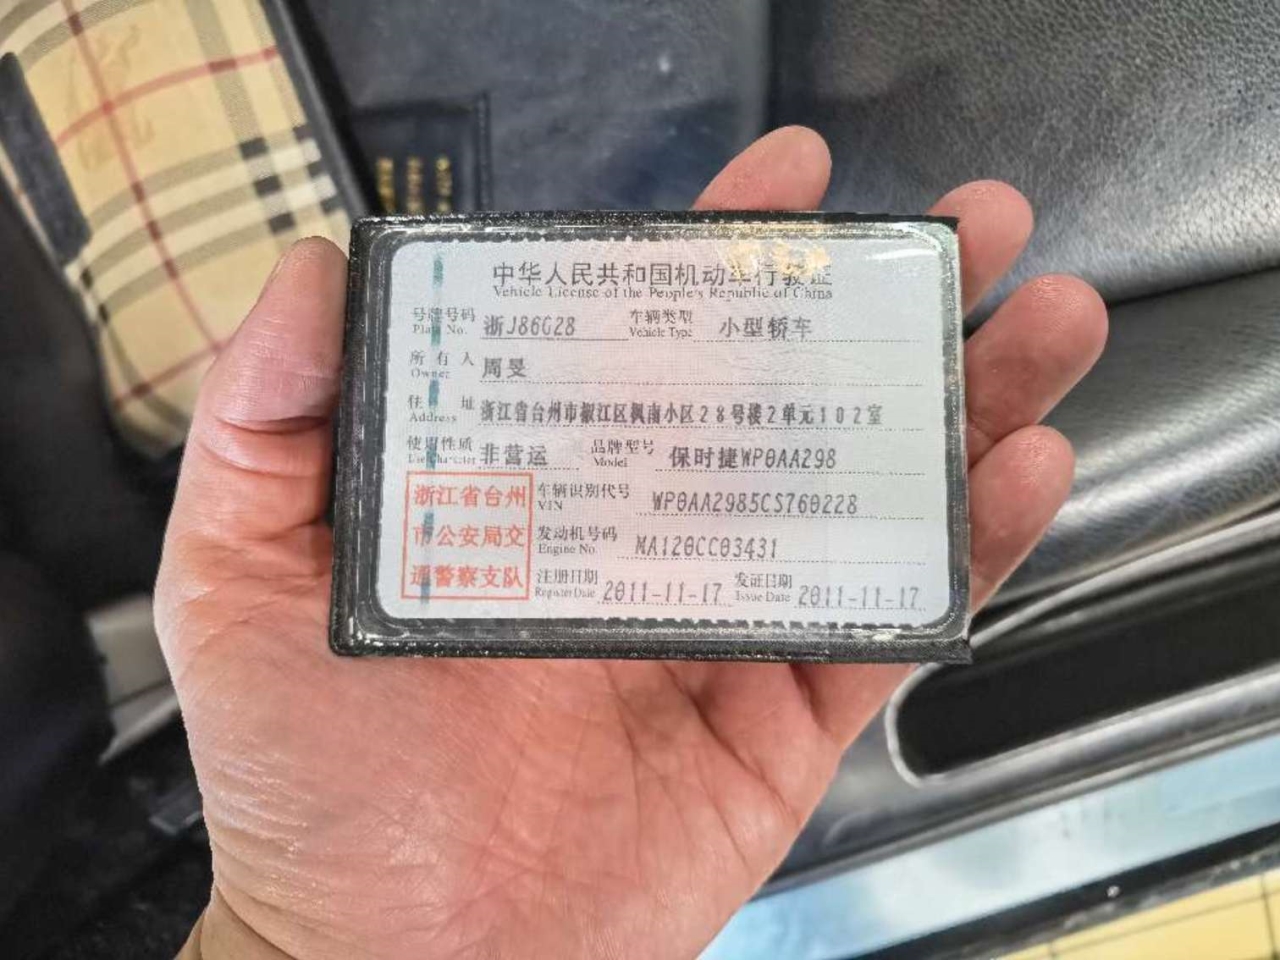 中华人民共和国机动车行驶证
Vehicle License of the People's Republic of China
号牌号码 浙J86G28 车辆类型 小型轿车
Plate No. Vehicle Type
所有人 周旻
Owner
住址 浙江省台州市椒江区枫南小区28号楼2单元102室
Address
使用性质 非营运 品牌型号 保时捷WP0AA298
Use Character Model
浙江省台州 车辆识别代号 WP0AA2985CS760228
VIN
市公安局交 发动机号码 MA120CC03431
Engine No.
通警察支队 注册日期 2011-11-17 发证日期 2011-11-17
Register Date Issue Date